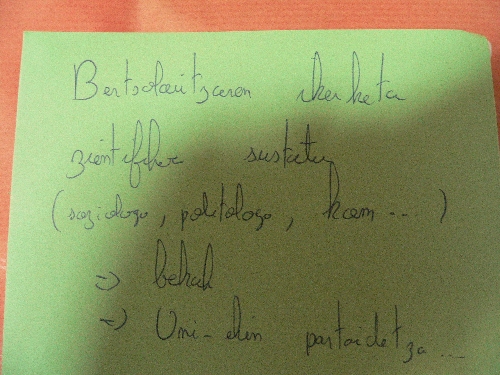 Bertsolaritzaren ikerketa
zientifikoa sustatu
(soziologo, politologo, kom ... )
=> bekak
=> Uni-ekin partaidetza ...